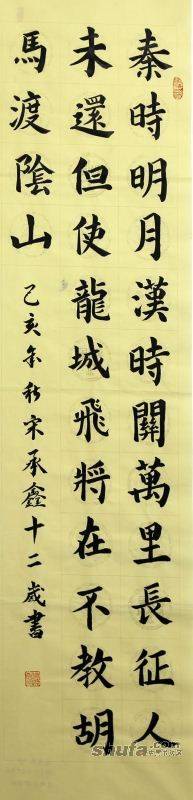 秦時明月漢時關萬里長征人
未還但使龍城飛將在不教胡
馬渡陰山
乙亥年秋宋承鑫十二歲書